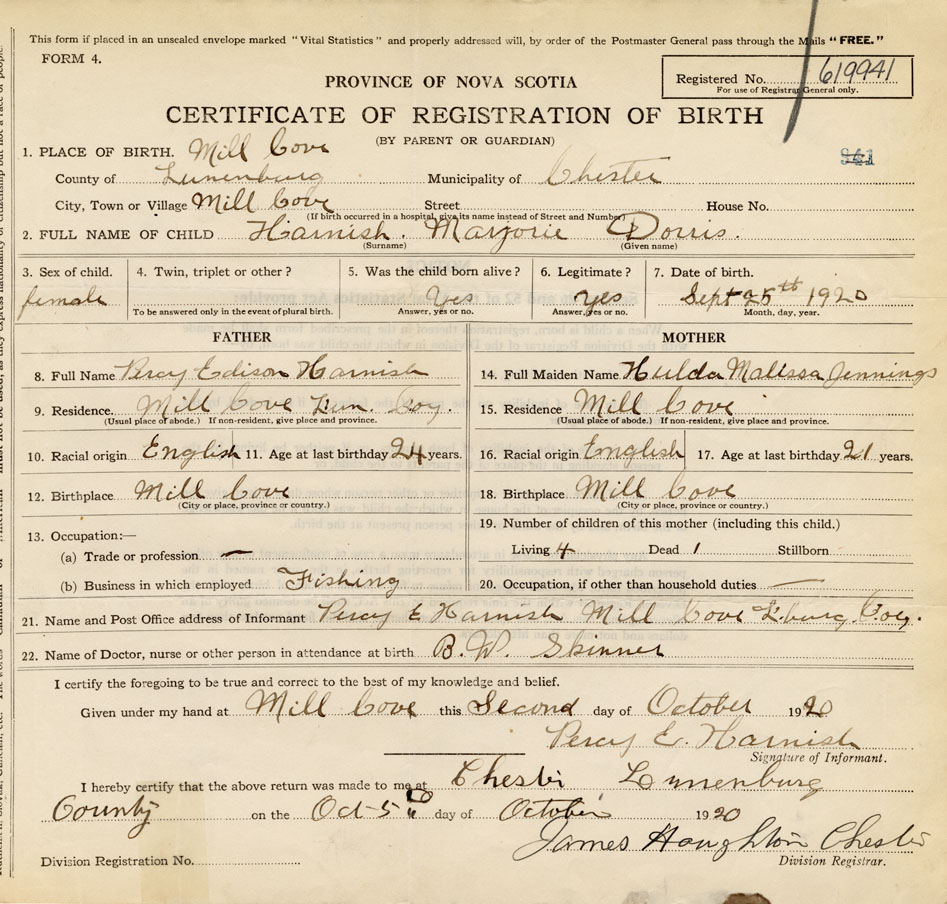 This form if placed in an unsealed envelope marked "Vital Statistics" and properly addressed will, by order of the Postmaster General pass through the Mails "FREE."
FORM 4.
Registered No. 619941
For use of Registrar General only.
PROVINCE OF NOVA SCOTIA
CERTIFICATE OF REGISTRATION OF BIRTH
(BY PARENT OR GUARDIAN)
1. PLACE OF BIRTH. Mill Cove
County of Lunenburg Municipality of Chester
City, Town or Village Mill Cove Street House No.
(If birth occurred in a hospital, give its name instead of Street and Number)
2. FULL NAME OF CHILD Harnish. Marjorie Dorris.
(Surname) (Given name)
3. Sex of child. 4. Twin, triplet or other? 5. Was the child born alive? 6. Legitimate? 7. Date of birth.
female Yes yes Sept 25th 1920
To be answered only in the event of plural birth. Answer, yes or no. Answer, yes or no. Month, day, year.
FATHER MOTHER
8. Full Name Percy Edison Harnish 14. Full Maiden Name Hulda Malissa Jennings
9. Residence. Mill Cove Lun. Coy. 15. Residence Mill Cove
(Usual place of abode.) If non-resident, give place and province. (Usual place of abode.) If non-resident, give place and province.
10. Racial origin English 11. Age at last birthday 24 years. 16. Racial origin English 17. Age at last birthday 21 years.
12. Birthplace Mill Cove 18. Birthplace Mill Cove
(City or place, province or country.) (City or place, province or country.)
13. Occupation:— 19. Number of children of this mother (including this child.)
(a) Trade or profession — Living 4 Dead 1 Stillborn
(b) Business in which employed Fishing 20. Occupation, if other than household duties —
21. Name and Post Office address of Informant Percy E Harnish Mill Cove L.burg. Coy.
22. Name of Doctor, nurse or other person in attendance at birth B. W. Skinner
I certify the foregoing to be true and correct to the best of my knowledge and belief.
Given under my hand at Mill Cove this Second day of October 1920
Percy E. Harnish
Signature of Informant.
I hereby certify that the above return was made to me at Chester, Lunenburg
County on the Oct 5 day of October 1920
James Houghton Chester
Division Registration No. Division Registrar.